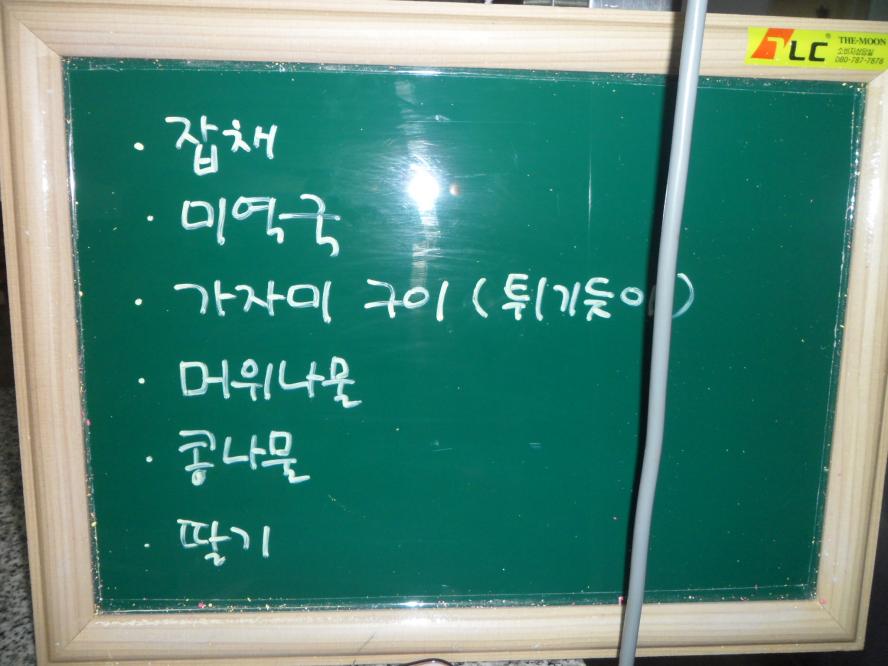 · 잡채
· 미역국
· 가자미 구이 (튀기듯이)
· 머위나물
· 콩나물
· 딸기
TLC THE-MOON
소비자상담실
080-787-7878